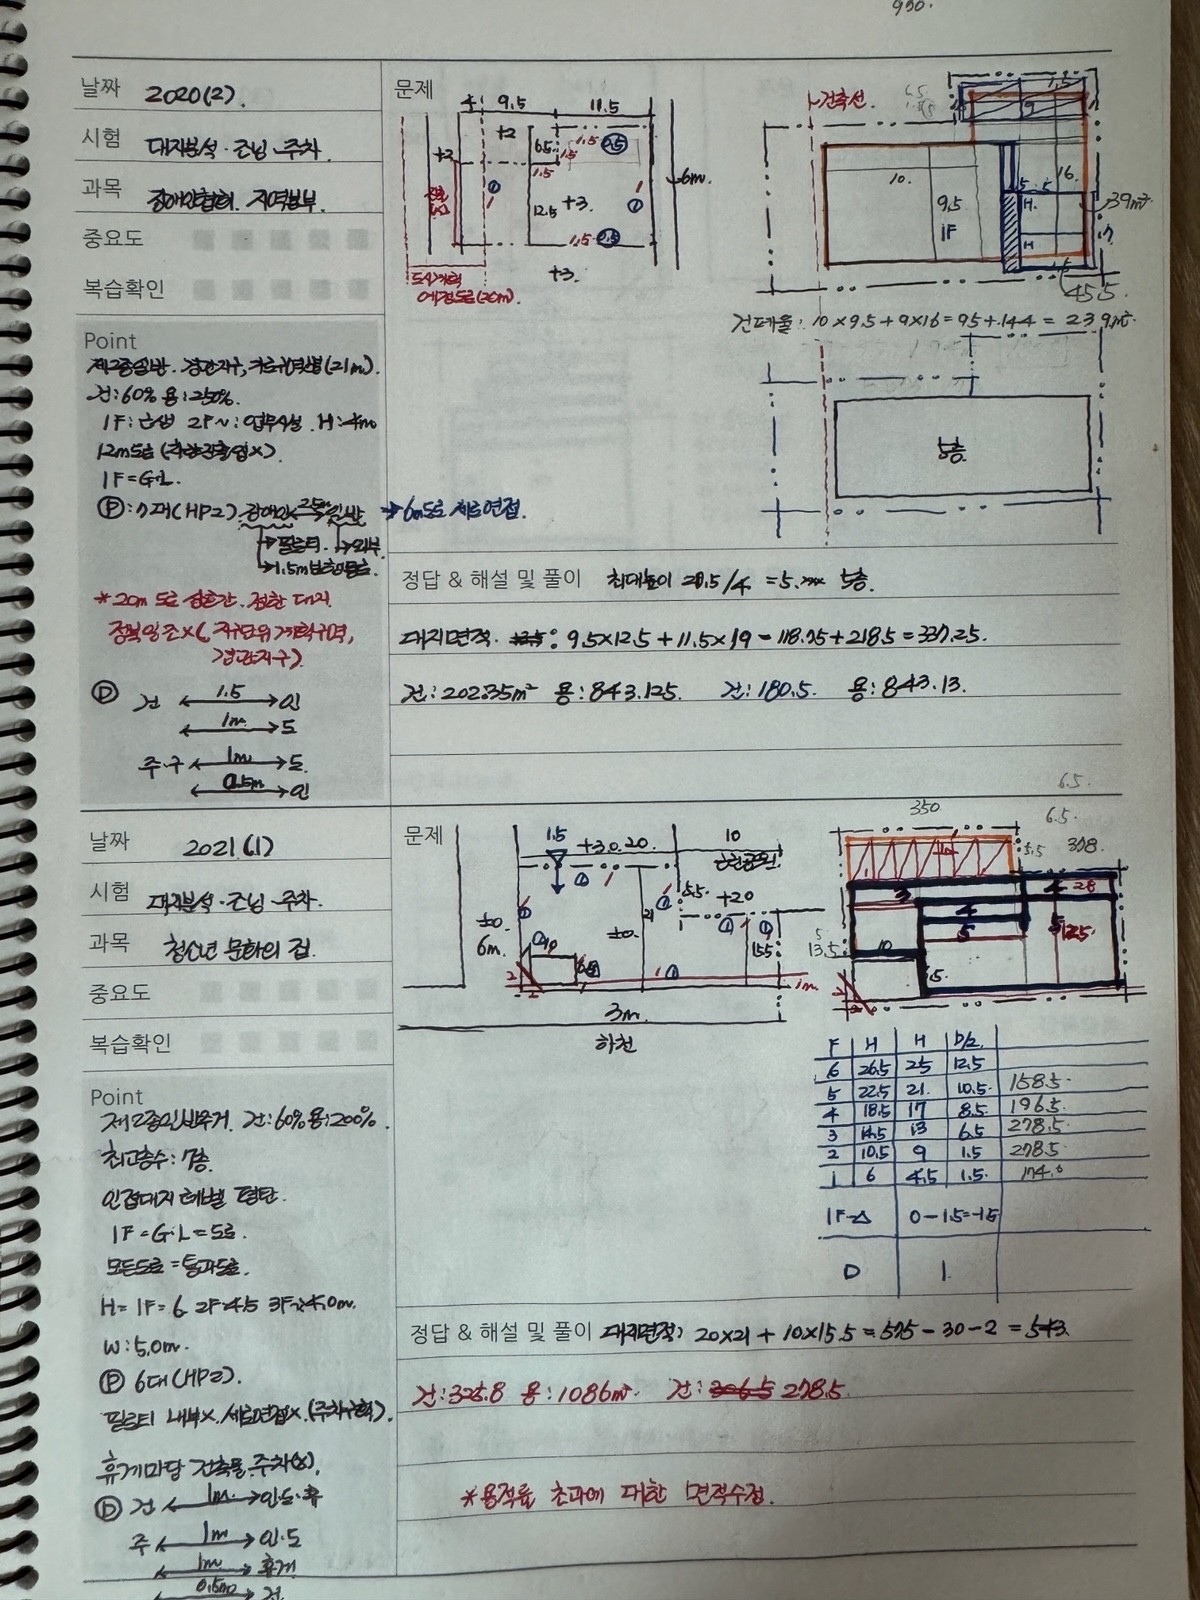 930.
날짜 2020(2).
시험 대지분석·조닝·주차
과목 장애인협회 지역본부
중요도
복습확인
Point
제2종일반. 경관지구, 가로구역별(21m).
건:60% 용:250%.
1F:근생 2F~:업무시설. H:4m
12m도로 (차량진출입×)
1F=G.L.
Ⓟ:7대(HP2)
→6m도로 세로면접.
→필로티. →외부
→1.5m보행통로.
*20m 도로 접한 대지.
정북일조×(지구단위계획구역,
경관지구).
Ⓟ 건 ←1.5→인
←1m→도
주·구 ←1m→도.
←0.5m→인
문제
4 9.5 11.5
+2
+2
6.5
1.5
1.5
1.5
12.5 +3.
1.5
6m.
+3.
도시계획
예정도로(20m).
건축선.
1.5
9
10.
9.5
1F
16.
H.
H
39m²
45.5.
건폐율: 10×9.5+9×16=95+144=239m².
5층.
정답 & 해설 및 풀이 최대높이 20.5/4 =5. 5층.
대지면적. : 9.5×12.5+11.5×19=118.75+218.5=337.25.
건:202.35m² 용:843.125. 건:180.5. 용:843.13.
날짜 2021(1)
시험 대지분석·조닝·주차.
과목 청소년 문화의 집.
중요도
복습확인
Point
제2종일반주거. 건:60% 용:200%.
최고층수:7층.
인접대지 레벨 평탄.
1F=G.L=도로.
모든도로=통과도로.
H= 1F=6 2F=4.5 3F~:4.0m.
W:5.0m.
Ⓟ 6대(HP2).
필로티 내부×. 세로면접×.(주차구획).
휴게마당 건축물,주차(×).
Ⓟ 건 ←1m→인·도·휴
주 ←1m→인·도
←1m→휴게
←0.5m→건
문제
1.5
+3.0 20.
10
근린공원.
5.5.
+20
±0.
6m.
±0.
21
15.5
1m
3m.
하천
350
6.5.
6.5.
5.5
378.
3
4
28
4
5
12.5
13.5
10
5
F H H D/2.
6 26.5 25 12.5
5 22.5 21. 10.5. 158.5.
4 18.5 17 8.5. 196.5.
3 14.5 13 6.5 278.5.
2 10.5 9 1.5. 278.5.
1 6 4.5 1.5.
1F-△ 0-1.5=-1.5
D 1.
정답 & 해설 및 풀이 대지면적: 20×21 + 10×15.5 =575-30-2=543.
건:325.8 용:1086m². 건: 278.5.
*용적률 초과에 대한 면적수정.